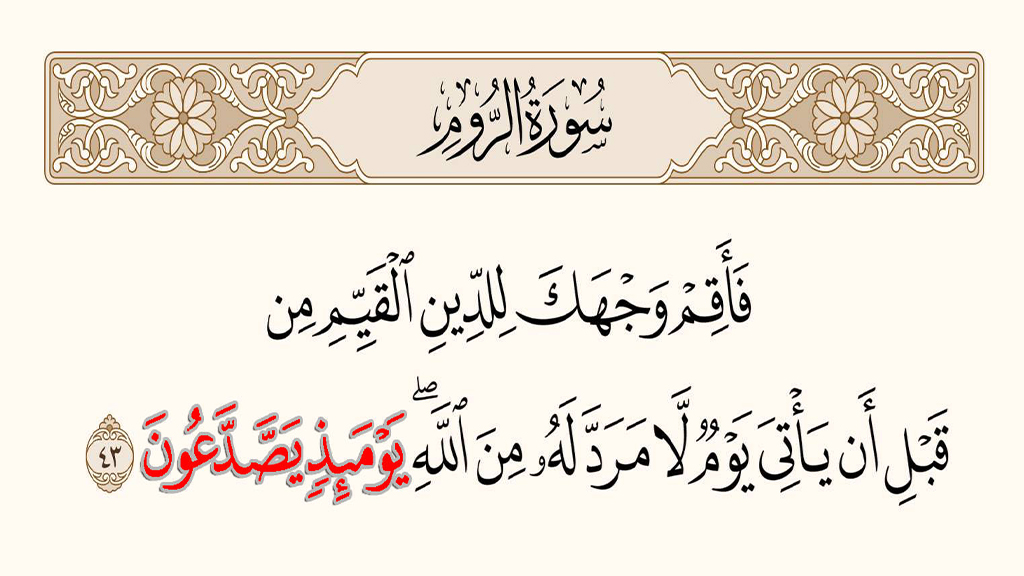 سُورَةُ الرُّومِ
فَأَقِمۡ وَجۡهَكَ لِلدِّينِ ٱلۡقَيِّمِ مِن
قَبۡلِ أَن يَأۡتِيَ يَوۡمٞ لَّا مَرَدَّ لَهُۥ مِنَ ٱللَّهِۖ يَوۡمَئِذٖ يَصَّدَّعُونَ ٤٣